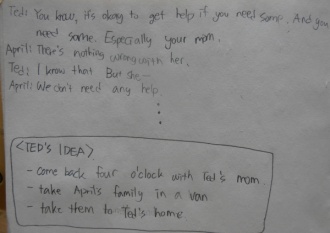 Ted: You know, it's okay to get help if you need some. And you
need some. Especially your mom.
April: There's nothing wrong with her.
Ted: I know that. But she—
April: We don't need any help.
.
.
.
<TED'S IDEA>
- come back four o'clock with Ted's mom
- take April's family in a van
- take them to Ted's home.